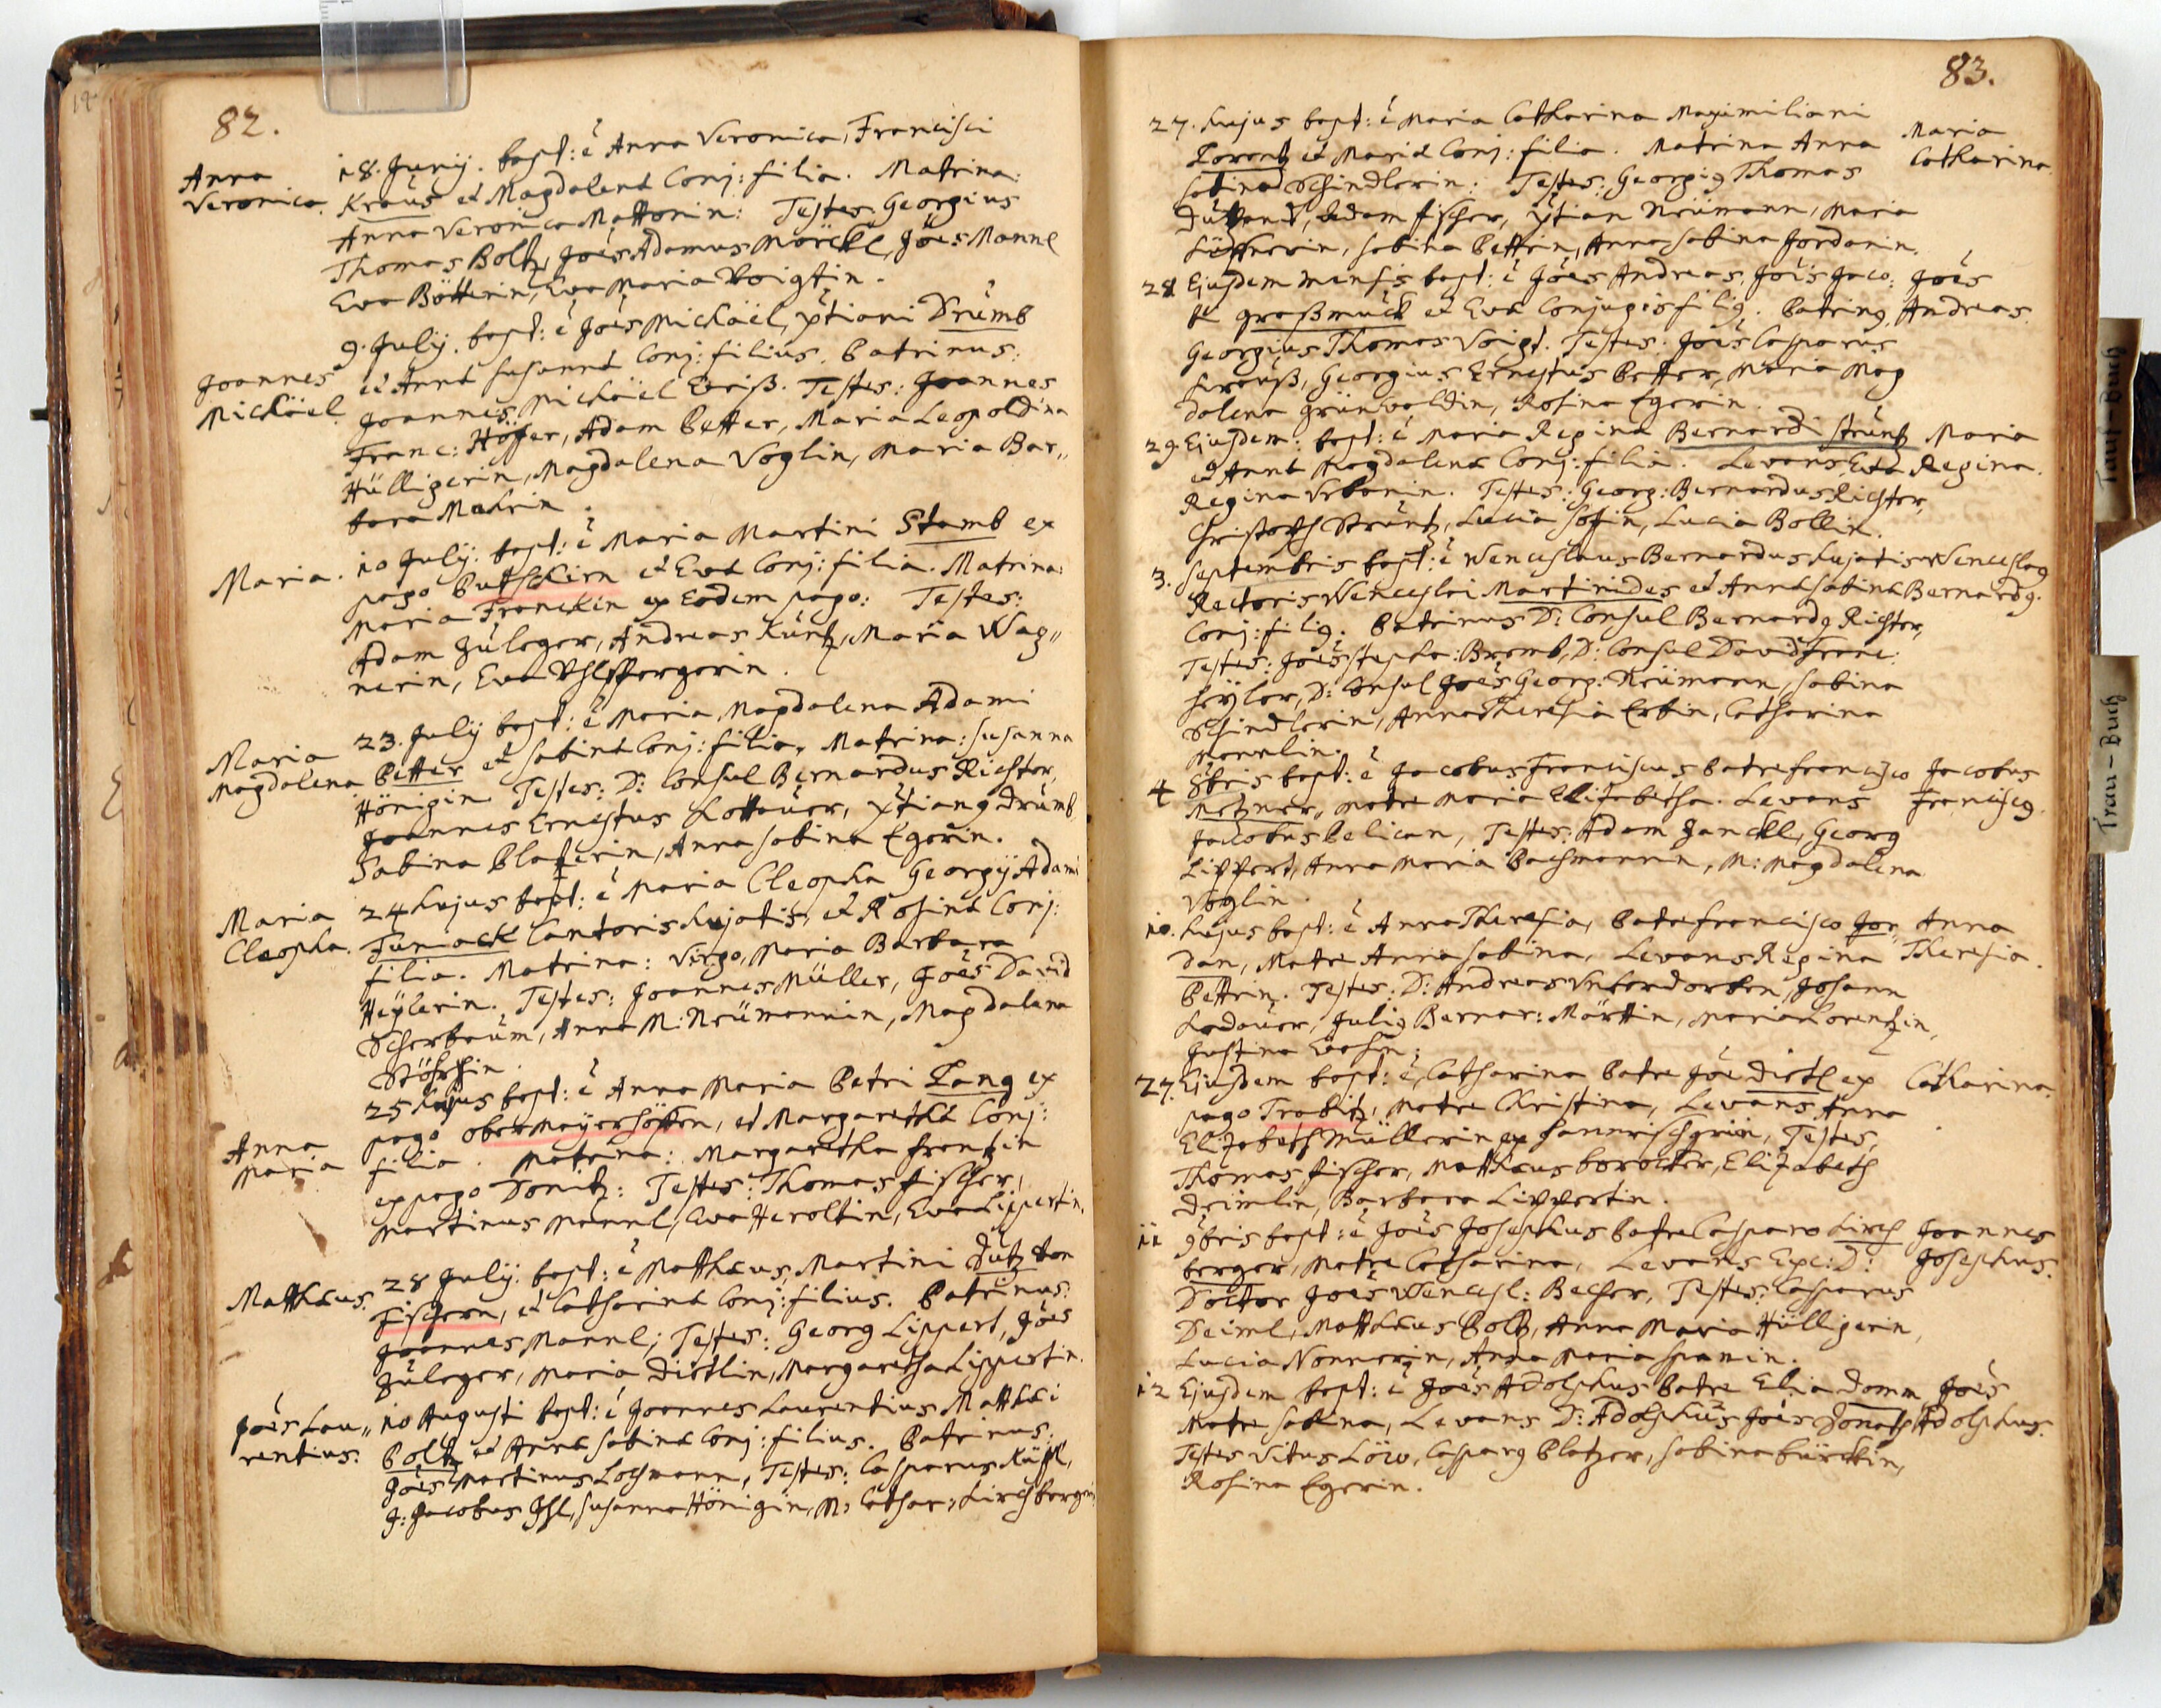 82.
Anna
Veronica.
18. Junij. bapt: ē Anna Veronica, Francisci
Kraus et Magdalenæ Conj: filia. Matrina:
Anna Veronica Mattonin: Testes Georgius
Thomas Boltz, Joēs Adamus Möckl, Joēs Mannl
Eva Bötterin, Eva Maria Voigtin.
Joannes
Michäel.
9. Julij. bapt: ē Joēs Michäel, Xtiani Drumb
et Annæ Susannæ Conj: filius. Patrinus:
Joannes Michäel Weiß. Testes: Joannes
Franc: Höfer, Adam Petter, Maria Leopoldina
Hülligerin, Magdalena Voglin, Maria Bar„
bara
Maria.
10 Julij: bapt: ē Maria Martini Stamb ex
pago Putschirn et Evæ Conj: filia. Matrina:
Maria Franckin ex Eodem pago: Testes:
Adam Zuleger, Andreas Küntz, Maria Wag„
nerin, Eva
Maria
Magdalena
23. Julij bapt: ē Maria Magdalena Adami
Petter et Sabinæ Conj: filia. Matrina: Susanna
Hönigin Testes: D: Consul Bernardus Richter,
Joannes Ernestus Lottauer, Xtiang Drumb
Sabina Platzerin, Anna Sabina Egerin.
Maria
Cleopha.
24 hujus bapt: ē Maria Cleopha Georgij Adami
Funiack Cantoris hujatis, et Rosinæ Conj:
filia. Matrina: Virgo, Maria Barbara
Heÿlerin. Testes: Joannes Müller, Joēs David
Scherbaum, Anna M: Neümannin, Magdalena
Anna
Maria
25 hujus bapt: ē Anna Maria Petri Lang ex
pago obermayerhöffen, et Margarethæ Conj:
filia. Matrina: Margaretha Frentzin
ex pago Donitz: Testes: Thomas Fischer,
Martinus Mannl, Eva Heroltin, Eva Lippertin.
Matthæus.
28 Julij. bapt: ē Matthæus, Martini Dutz von
Fischern, et Catharinæ Conj: filius. Patrinus:
Joannes Mannl; Testes: Georg Lippert, Joēs
Zuleger, Maria Dietlin, Margaretha Lippertin.
Joēs Lau„
rentius.
10 Augusti bapt: ē Joannes Laurentius Matthæi
Boltz et Annæ Sabinæ Conj: filius. Patrinus:
Joēs Martinus Lochmann, Testes: Casparus
J: Jacobus Susanna Hönigin, M: Cathar: Kirchbergerin
83.
27. hujus bapt: ē Maria Catharina Maximiliani
Lorentz et Mariæ Conj: filia. Matrina Anna
Sabina Schindlerin: Testes: Georgig Thomas
Adam Fischer, Xtian Neümann, Maria
Sabina Pettrin, Anna Sabina Jordanin.
Maria
Catharina.
28 Ejusdem mensis bapt: ē Joēs Andreas, Joēs Jaco:
bi Graßmück et Evæ Conjugis filig. Patring
Georgius Thomas Voigt. Testes: Joēs Casparus
Krauß, Georgius Ernestus Petter, Maria Mag
dalena Grünwaldin, Rosina Egerin.
Joēs
Andreas.
29 Ejusdem: bapt: ē Maria Regina Bernardi Strüntz
et Annæ Magdalenæ Conj: filia. Levans Eva
Regina Urbanin. Testes: Georg: Bernardus Richter,
Christoph Strüntz, Lucia Lucia Bollin.
Maria
Regina.
3. Septembris bapt: ē Wenceslaus Bernardus hujatis
Rectoris Wenceslai Martinides et Annæ Sabinæ
Conj: filig. Patrinus D: Consul Bernardg Richter,
Testes: Joēs Stepha: Bromb, D: Consul David Franc:
Heÿler, D: Consul Joēs Georg: Neümann, Sabina
Schindlerin, Anna Theresia Erbin, Catharina
Mannlin.
Wenceslag
Bernardg.
4 8bris bapt: ē Jacobus Franciscus Patre Francisco
Metzner, Matre Maria Elisabetha. Levans
Jacobus Pelican, Testes: Adam Janckl, Georg
Lippert, Anna Maria Bachmannin, M: Magdalena
Voglin.
Jacobus
Franciscg.
10. hujus bapt: ē Anna Theresia, Patre Francisco Jor„
dan, Matre Anna Sabina, Levans Regina
Pettrin. Testes: D: Andreas Unterdorben, Johann
Ladauer, Julig Bernar: Märttin, Maria Lorentzin,
Justina
Anna
Theresia.
27. Ejusdem bapt: ē, Catharina Patre Joē Dietl ex
pago Trabitz, Matre Christina, Levans Anna
Elisabeth Müllerin ex Testes,
Thomas Fischer, Matthæus Elisabeth
Deimlin, Barbara Lippertin.
Catharina.
11 9bris bapt: ē Joēs Josephus Patre Casparo Kirch
berger, Matre Catharina, Levans Exc: D:
Doctor Joēs Wencesl: Becher, Testes: Casparus
Deiml, Matthæus Boltz, Anna Maria Hülligerin,
Lucia Nonnerin, Anna Maria Spanin.
Joannes
Josephus.
12 Ejusdem bapt: ē Joēs Adolphus Patre Elia Domm,
Matre Sabina, Levans D: Adolphus Joēs Donath
Testes Vitus Löw, Casparg Platzer, Sabina Bürckin,
Rosina Egerin.
Joēs
Adolphus.
Tauf-Buch
Trau-Buch